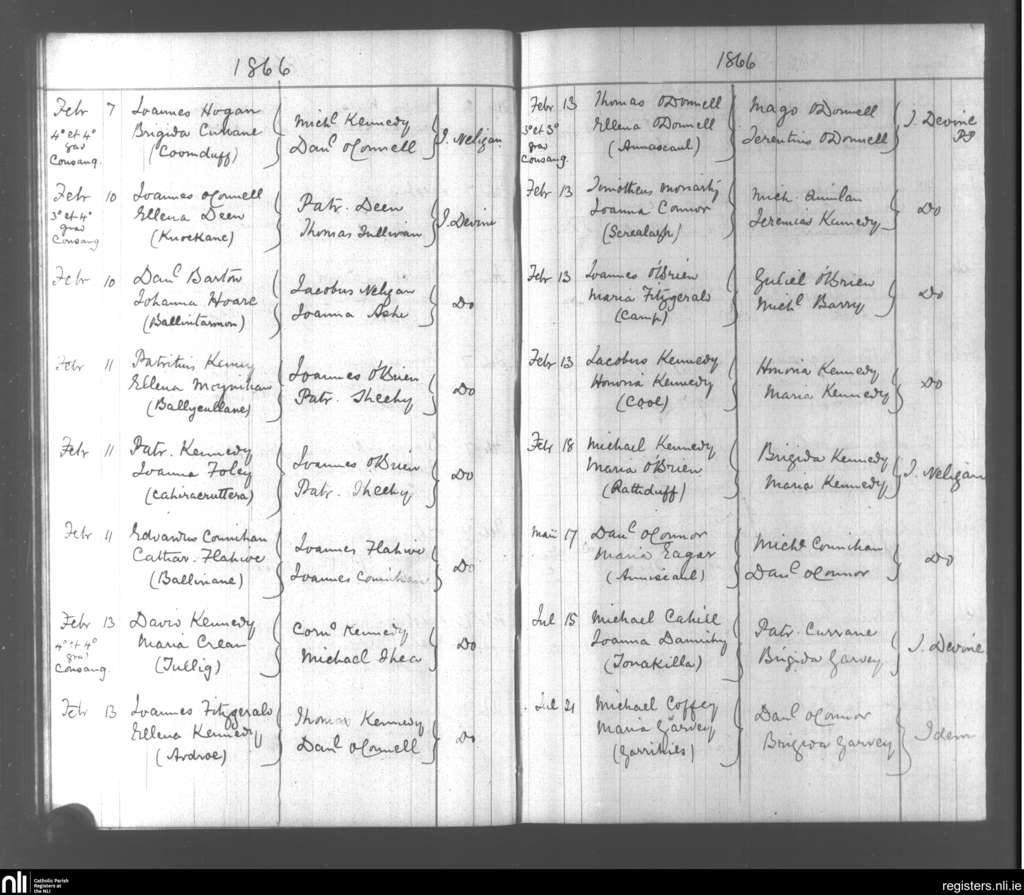 1866
Febr 7 Joannes Hogan
4° et 4° Brigida Culhane Michl Kennedy
grad (Coomduff) Danl O'Connell J. Neligan
Consang.
Febr 10 Joannes O'Connell
3° et 4° Ellena Deen Patr. Deen
grad (Knockane) Thomas Sullivan J. Devine
Consang
Febr 10 Danl Barton
Johanna Hoare Jacobus Neligan
(Ballintarmon) Joanna Ashe Do
Febr 11 Patritius
Ellena Moynihan Joannes O'Brien
(Ballycullane) Patr. Sheehy Do
Febr 11 Patr. Kennedy
Joanna Foley Joannes O'Brien
(Cahiracruttera) Patr. Sheehy Do
Febr 11 Edvardus Counihan
Cathar. Flahive Joannes Flahive
(Ballinane) Joannes Counihan Do
Febr 13 David Kennedy
4° et 4° Maria Crean Corns Kennedy
grad (Tullig) Michael Shea Do
Consang.
Febr 13 Joannes Fitzgerald
Ellena Kennedy Thomas Kennedy
(Ardroe) Danl O'Connell Do
1866
Febr 13 Thomas O'Donnell Mago O'Donnell
3° et 3° Ellena O'Donnell Terentius O'Donnell J. Devine
grad (Annascaul) PP
Consang.
Febr 13 Timotheus Moriarty Mich. Quinlan
Joanna Connor Jeremias Kennedy Do
Febr 13 Joannes O'Brien Guliel O'Brien
Maria Fitzgerald Michl Barry Do
(Camp)
Febr 13 Jacobus Kennedy Honoria Kennedy
Honoria Kennedy Maria Kennedy Do
(Cool)
Febr 18 Michael Kennedy Brigida Kennedy
Maria O'Brien Maria Kennedy J. Neligan
(Rathduff)
17 Danl O'Connor
Maria Eagar Michl Counihan
(Anniscaul) Danl O'Connor Do
Jul 15 Michael Cahill
Joanna Patr. Currane
(Tonakilla) Brigida Garvey J. Devine
Jul 21 Michael Coffey
Maria Garvey Danl O'Connor
(Garrihies) Brigida Garvey Idem
nli Catholic Parish
Registers at
the NLI
registers.nli.ie